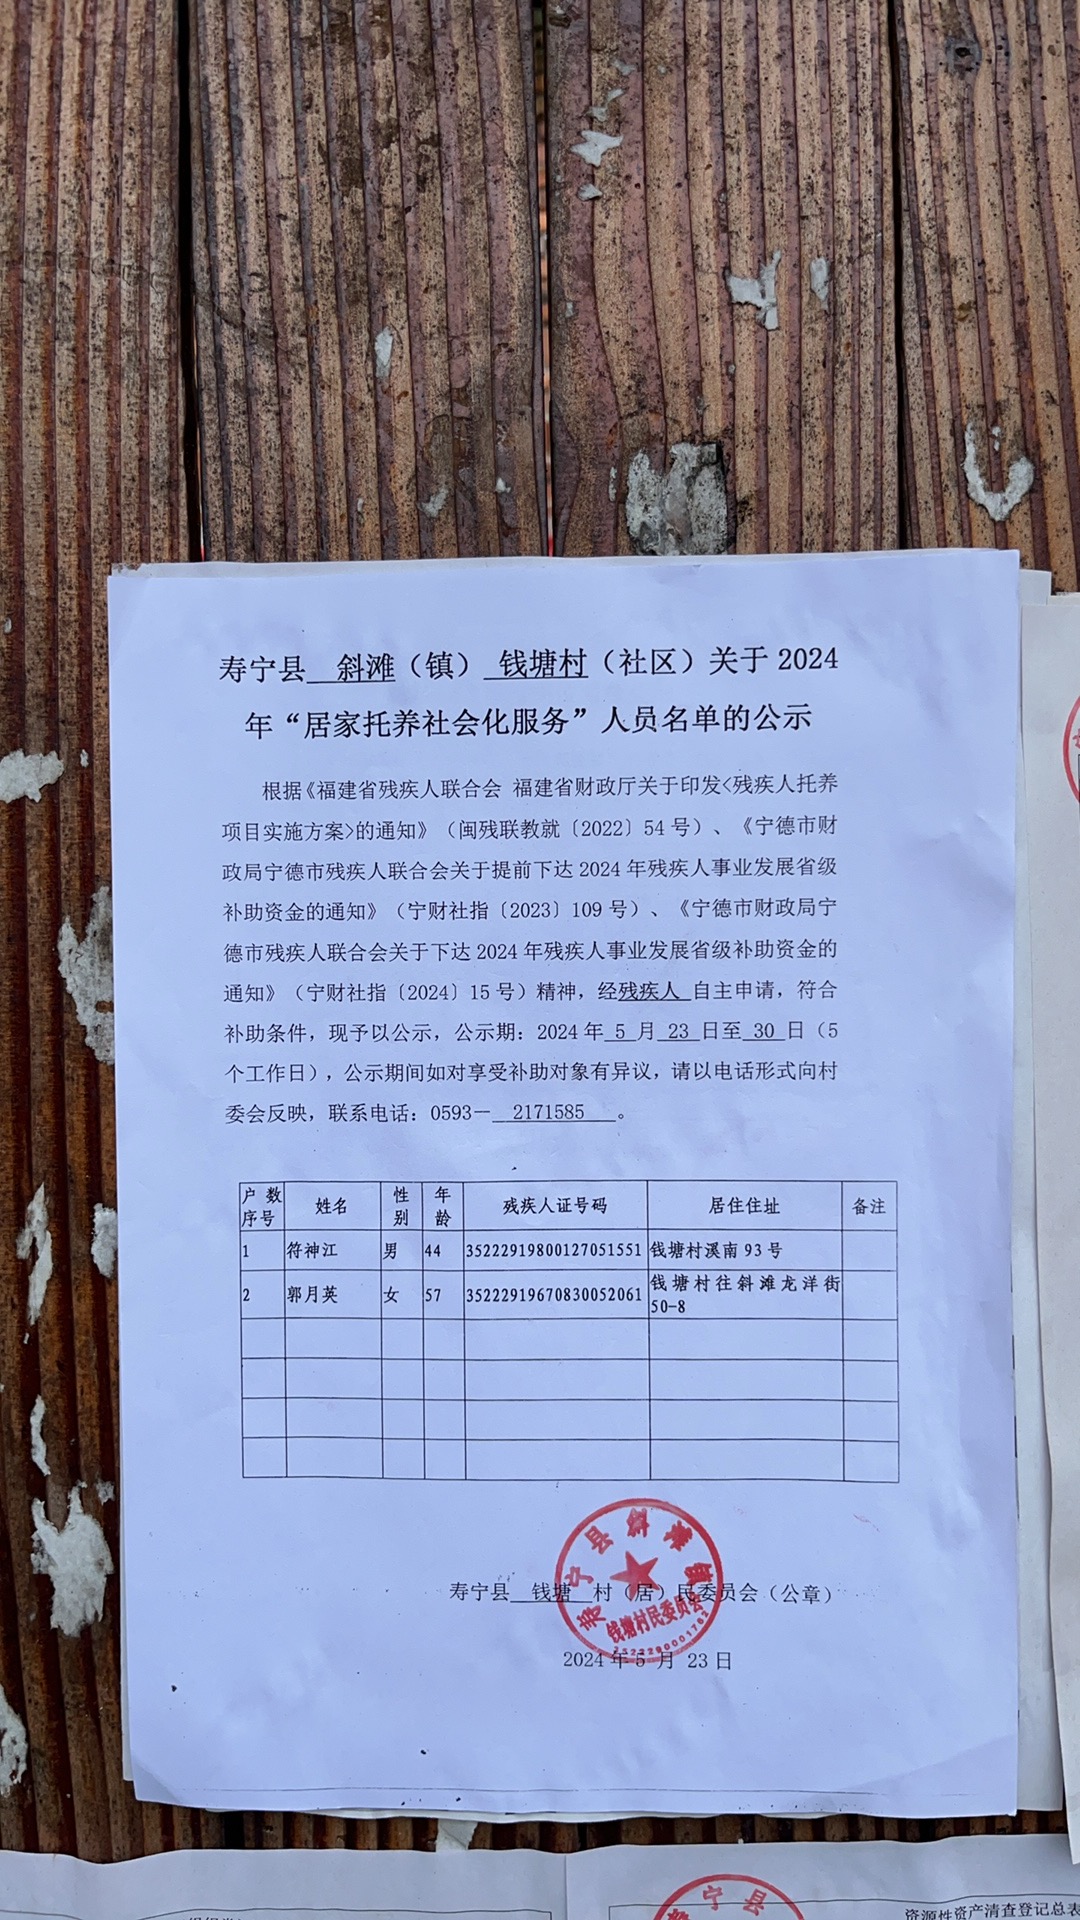 寿宁县 斜滩（镇） 钱塘村（社区）关于 2024
年“居家托养社会化服务”人员名单的公示
根据《福建省残疾人联合会 福建省财政厅关于印发<残疾人托养
项目实施方案>的通知》（闽残联教就〔2022〕54 号）、《宁德市财
政局宁德市残疾人联合会关于提前下达 2024 年残疾人事业发展省级
补助资金的通知》（宁财社指〔2023〕109 号）、《宁德市财政局宁
德市残疾人联合会关于下达 2024 年残疾人事业发展省级补助资金的
通知》（宁财社指〔2024〕15 号）精神，经残疾人 自主申请，符合
补助条件，现予以公示，公示期：2024 年 5 月 23 日至 30 日（5
个工作日），公示期间如对享受补助对象有异议，请以电话形式向村
委会反映，联系电话：0593— 2171585 。
户数序号 姓名 性别 年龄 残疾人证号码 居住住址 备注
1 符神江 男 44 35222919800127051551 钱塘村溪南 93 号
2 郭月英 女 57 35222919670830052061 钱塘村往斜滩龙洋街
50-8
寿宁县 钱塘 村（居）民委员会（公章）
寿宁县斜滩镇
钱塘村民委员会
2024 年 5 月 23 日
宁县
资源性资产清查登记总表